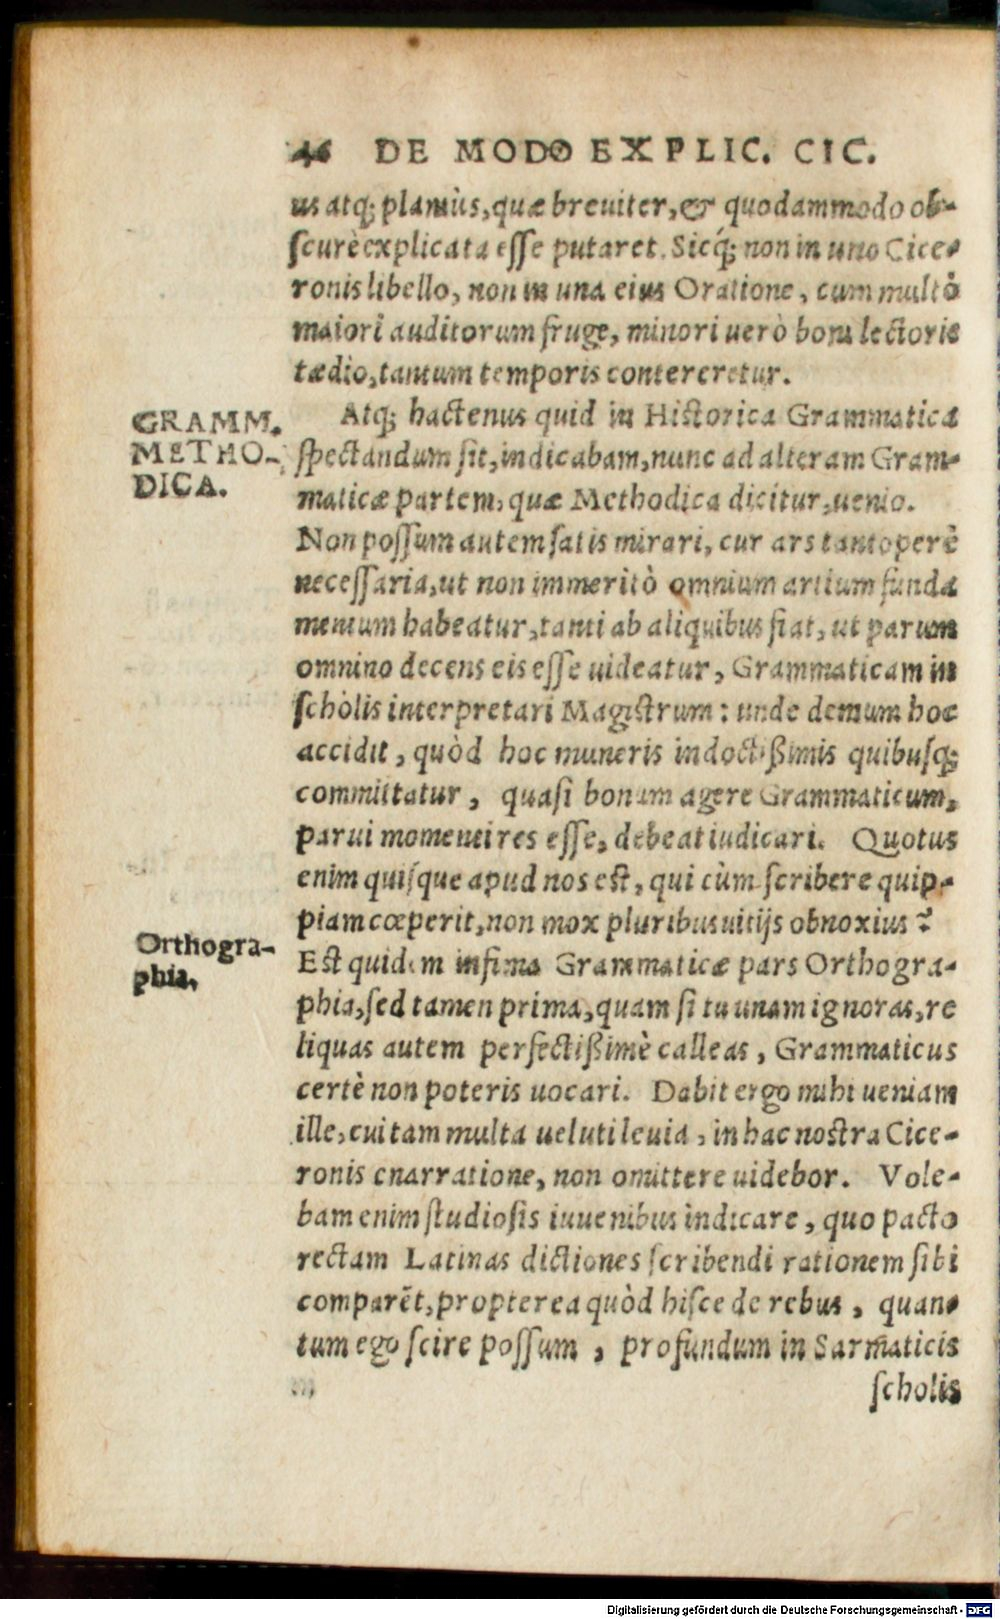 46 DE MODO EXPLIC. CIC.
us atq; planiùs, quæ breuiter, & quodammodo ob-
scurè explicata esse putaret. Sicq́; non in uno Cice-
ronis libello, non in una eius Oratione, cum multò
maiori auditorum fruge, minori uerò boni lectoris
tædio, tantum temporis contereretur.
GRAMM.
METHO-
DICA.
Atq; hactenus quid in Historica Grammatica
spectandum sit, indicabam, nunc ad alteram Gram-
maticæ partem, quæ Methodica dicitur, uenio.
Non possum autem satis mirari, cur ars tantoperè
necessaria, ut non immeritò omnium artium funda
mentum habeatur, tanti ab aliquibus fiat, ut parum
omnino decens eis esse uideatur, Grammaticam in
scholis interpretari Magistrum: unde demum hoc
accidit, quòd hoc muneris indoctißimis quibusq;
committatur, quasi bonum agere Grammaticum,
parui momenti res esse, debeat iudicari. Quotus
enim quisque apud nos est, qui cùm scribere quip-
piam cœperit, non mox pluribus uitijs obnoxius?
Orthogra-
phia.
Est quidem infima Grammaticæ pars Orthogra-
phia, sed tamen prima, quam si tu unam ignoras, re
liquas autem perfectißimè calleas, Grammaticus
certè non poteris uocari. Dabit ergo mihi ueniam
ille, cui tam multa ueluti leuia, in hac nostra Cice-
ronis enarratione, non omittere uidebor. Vole-
bam enim studiosis iuuenibus indicare, quo pacto
rectam Latinas dictiones scribendi rationem sibi
comparēt, propterea quòd hisce de rebus, quan-
tum ego scire possum, profundum in Sarmaticis
scholis
Digitalisierung gefördert durch die Deutsche Forschungsgemeinschaft - DFG